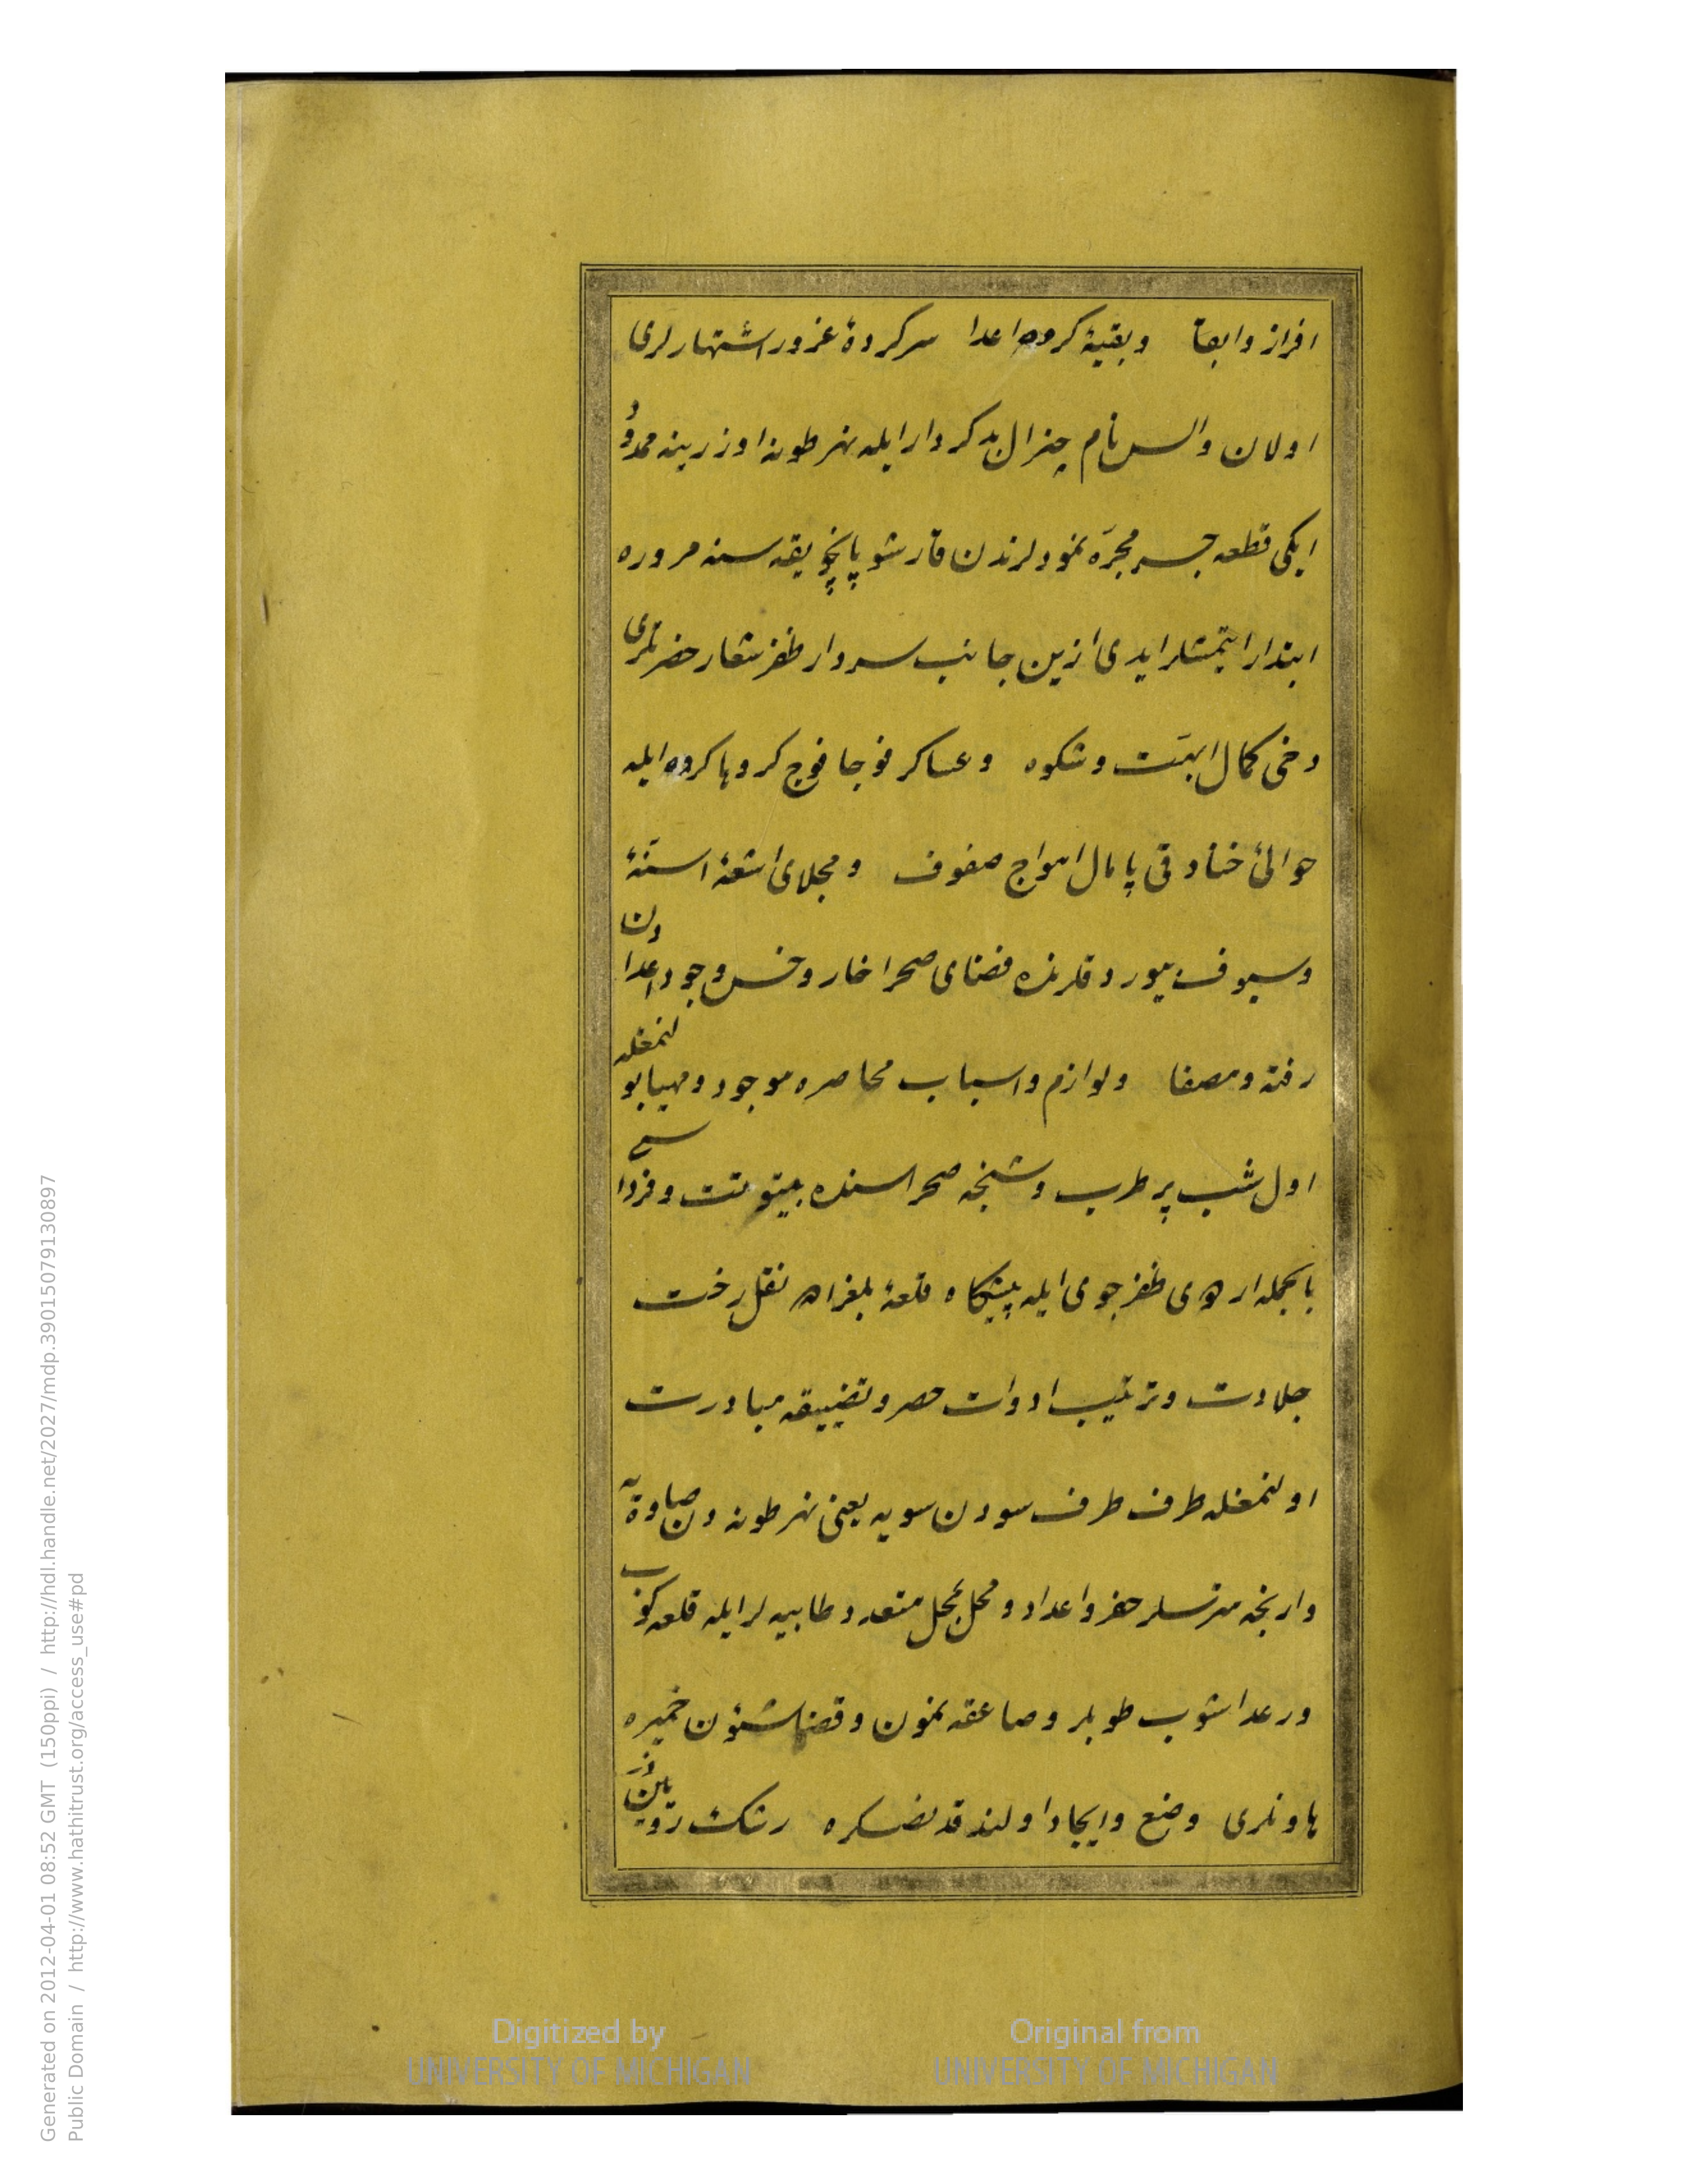 افراز و ابقا و بقیهٔ كروه اعدا سركردهٔ غرور اشتهارلری
اولان والس نام جنرال بدكردار ایله نهر طونه اوزرینه ممدود
ایكی قطعه جسر مجرّه نمودلرندن قارشو پانچوه یقه سنه مروره
ابتدار ایتمشلر ایدی ازین جانب سردار ظفر شعار حضرتلری
دخی كمال ابهت و شكوه و عساكر فوجا فوج كروها كروه ایله
حوالئ خنادقی پامال امواج صفوف و مجلای اشعهٔ اسنّهٔ
و سیوف بیوردقلرنده فضای صحرا خار و خس وجود اعدادن
رفته و مصفا و لوازم و اسباب محاصره موجود و مهیا بولنمغله
اول شب پر طرب و شنجه صحراسنده بیتوتت و فرداسی
بالجمله اردوی ظفر جوی ایله پیشكاه قلعهٔ بلغراده نقل رخت
جلادت و ترتیب ادوات حصر و تضییقه مبادرت
اولنمغله طرف طرف سودن سویه یعنی نهر طونه دن صاوه یه
وارنجه مترسلر حفر و اعداد و محل بمحل متعدد طابیه لر ایله قلعه كوب
و رعد اشوب طوپلر و صاعقه نمون و قضا شئون خمپره
هاونلری وضع و ایجاد اولندقدنصكره رشك